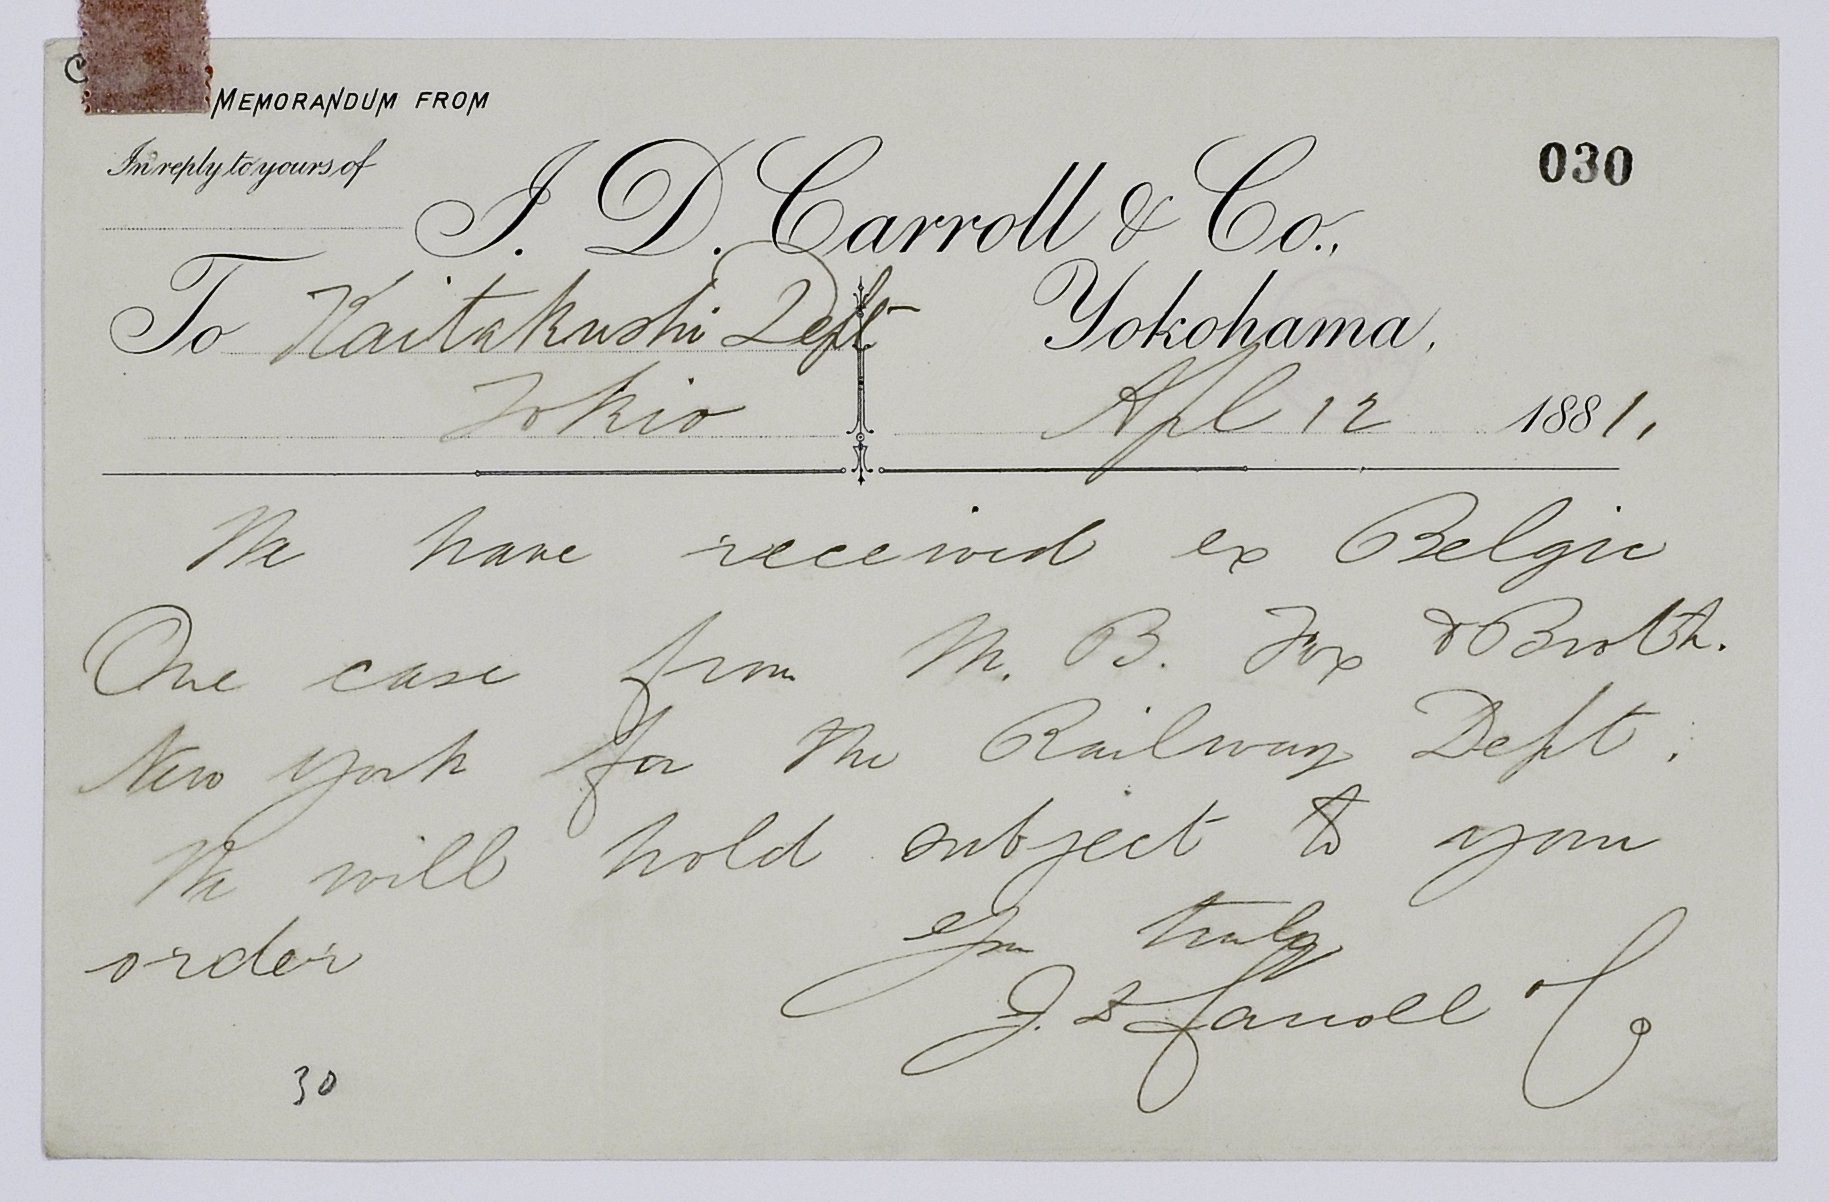 MEMORANDUM FROM
In reply to yours of
J. D. Carroll & Co.,
030
To Kaitakushi Dept
Yokohama,
Tokio
Apl 12 1881,
We have received ex Belgic
One case from M. B. Fox & Broth.
New York for the Railway Dept.
We will hold subject to your
order
Your truly
J. D Carroll & Co
30